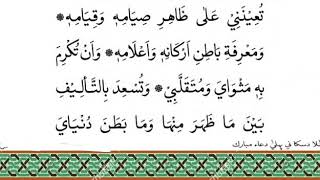 تُعِيْنَنِيْ عَلٰى ظَاهِرِ صِيَامِهٖ وَقِيَامِهٖ*
وَمَعْرِفَةِ بَاطِنِ اَرْكَانِهٖ وَاَعْلَامِهٖ* وَاَنْ تُكْرِمَ
بِهٖ مَثْوَايَ وَمُتَقَلَّبِيْ* وَتُسْعِدَ بِالتَّأْلِيْفِ
بَيْنَ مَا ظَهَرَ مِنْهَا وَمَا بَطَنَ دُنْيَايَ
پهلي دعاء مبارك